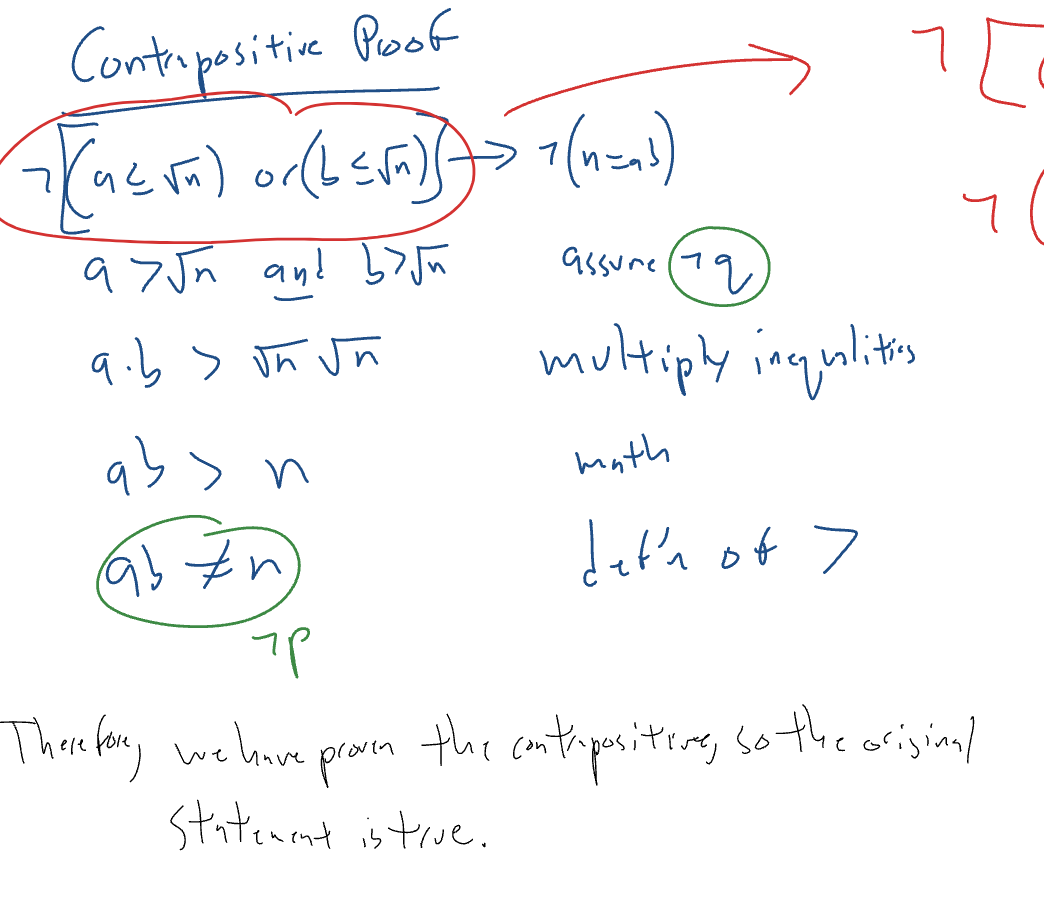 Contrapositive Proof
¬[(a ≤ √n) or (b ≤ √n)] → ¬(n=ab)
¬[(
¬(
a > √n and b > √n assume ¬q
a·b > √n √n multiply inequalities
ab > n math
ab ≠ n def'n of >
¬p
Therefore, we have proven the contrapositive, so the original
statement is true.